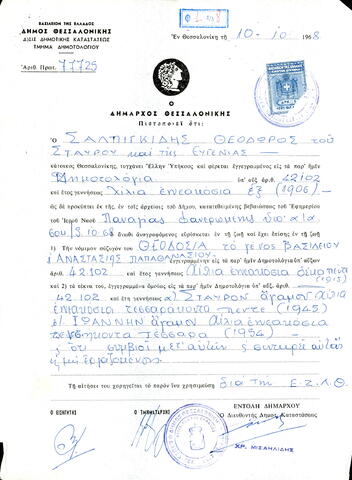 Φ 1
ΒΑΣΙΛΕΙΟΝ ΤΗΣ ΕΛΛΑΔΟΣ
ΔΗΜΟΣ ΘΕΣΣΑΛΟΝΙΚΗΣ
Δ)ΣΙΣ ΔΗΜΟΤΙΚΗΣ ΚΑΤΑΣΤΑΣΕΩΣ
ΤΜΗΜΑ ΔΗΜΟΤΟΛΟΓΙΟΥ
Ἐν Θεσσαλονίκῃ τῇ 10-10-1968
Ἀριθ. Πρωτ. 77725
Ο
ΔΗΜΑΡΧΟΣ ΘΕΣΣΑΛΟΝΙΚΗΣ
Πιστοποιεῖ ὅτι:
Ὁ ΣΑΛΠΙΓΚΙΔΗΣ ΘΕΟΔΩΡΟΣ τοῦ
ΣΤΑΥΡΟΥ καί τῆς ΕΥΓΕΝΙΑΣ
κάτοικος Θεσσαλονίκης, τυγχάνει Ἕλλην Ὑπήκοος καὶ φέρεται ἐγγεγραμμένος εἰς τὰ παρ' ἡμῖν
Δημοτολόγια ὑπ' αὔξ. ἀριθ. 42102
καὶ ἔτος γεννήσεως Χίλια ἐννεακόσια ἕξ (1906)
ὡς δὲ προκύπτει ἐκ τῆς, ἐν τοῖς ἀρχείοις τοῦ Δήμου, κατατεθειμένης βεβαιώσεως τοῦ Ἐφημερίου
τοῦ Ἱεροῦ Ναοῦ Παναγίας
9.10.68 ὁ διαθοῦ ἀναγραφόμενος εὑρίσκεται ἐν τῇ ζωῇ καὶ ἔχει ἐπίσης ἐν τῇ ζωῇ:
1) Τὴν νόμιμον σύζυγόν του ΘΕΟΔΟΣΙΑ τὸ γένος ΒΑΣΙΛΕΙΟΥ
ΑΝΑΣΤΑΣΙΑΣ ΠΑΠΑΘΑΝΑΣΙΟΥ ἐγγεγραμμένην εἰς τὰ παρ' ἡμῖν Δημοτολόγια ὑπ' αὔξ.
ἀριθ. 42.102 καὶ ἔτος γεννήσεως Χίλια ἐννεακόσια
(1915)
καὶ 2) τὰ τέκνα του, ἐγγεγραμμένα ὁμοίως εἰς τὰ παρ' ἡμῖν Δημοτολόγια ὑπ' αὔξ. ἀριθ.
42102 καὶ ἔτη γεννήσεως α) ΣΤΑΥΡΟΝ ἄγαμον Χίλια
ἐννεακόσια τεσσαράκοντα πέντε (1945)
β) ΙΩΑΝΝΗΝ ἄγαμον Χίλια ἐννεακόσια
πεντήκοντα τέσσαρα (1954)
ὅτι συμβιοῖ μετ' αὐτῶν
Τῇ αἰτήσει του χορηγεῖται τὸ παρὸν ἵνα χρησιμεύσῃ διὰ τὴν Ε.Ζ.Λ.Θ.
Ο ΕΙΣΗΓΗΤΗΣ
Ο ΤΜΗΜΑΤΑΡΧΗΣ
ΕΝΤΟΛΗ ΔΗΜΑΡΧΟΥ
Ὁ Διευθυντὴς Δημοτ. Καταστάσεως
ΧΡ. ΜΙΣΑΗΛΙΔΗΣ